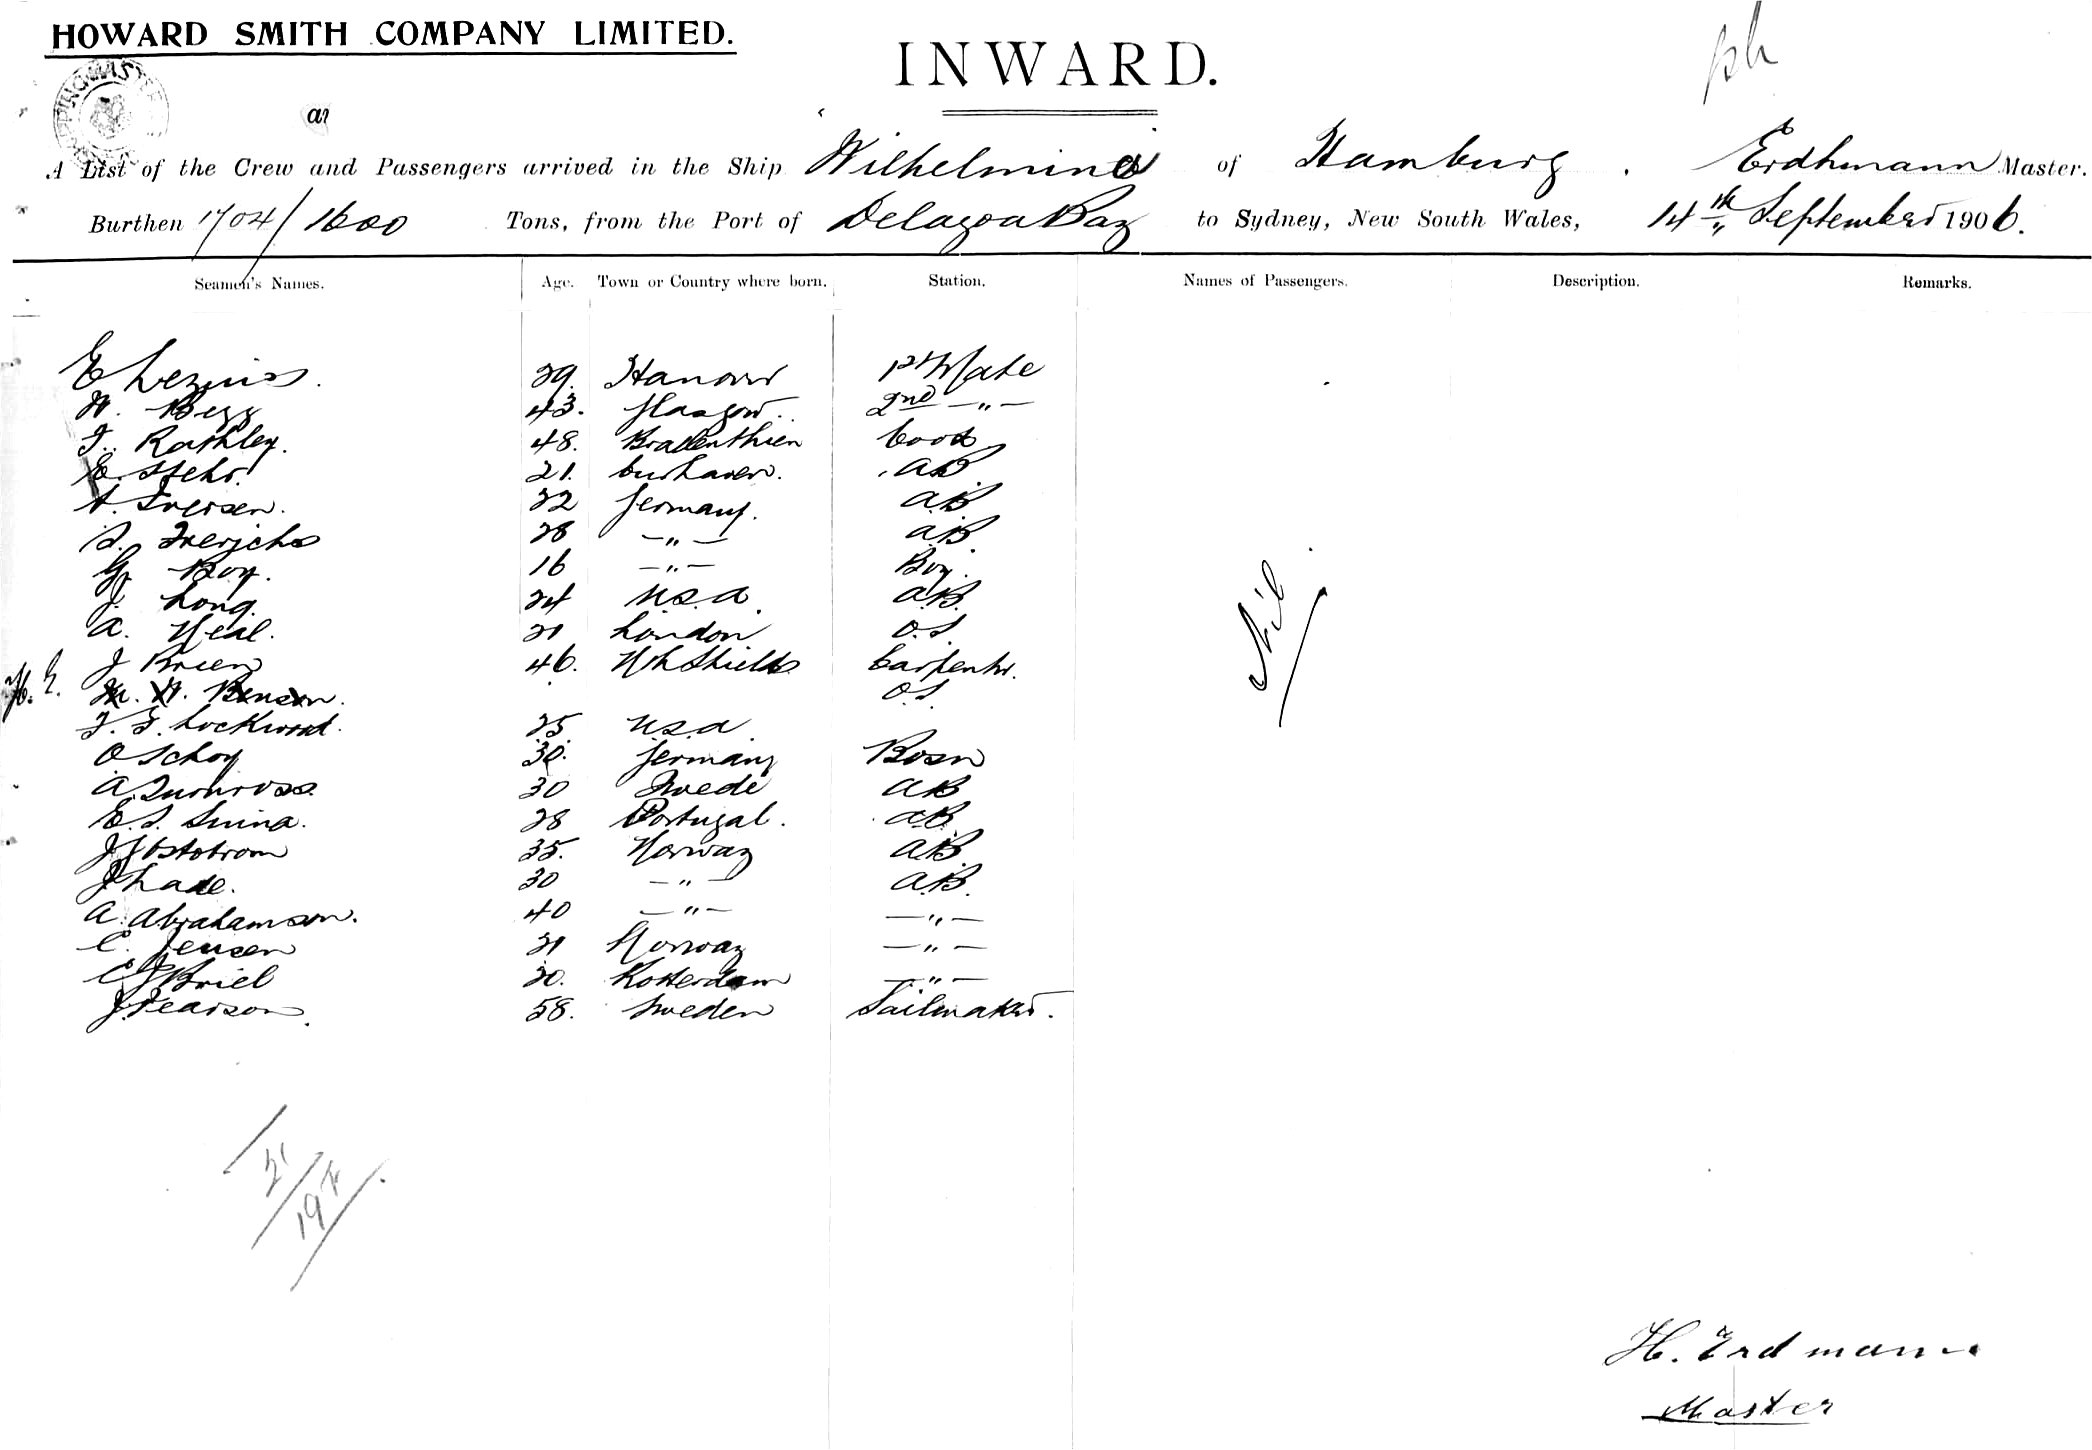 HOWARD SMITH COMPANY LIMITED.
INWARD.
A List of the Crew and Passengers arrived in the Ship Wilhelmina of Hamburg. Erdhmann Master.
Burthen 1704/1600 Tons, from the Port of Delagoa Bay to Sydney, New South Wales, 14th September 1906.
Seamen's Names. Age. Town or Country where born. Station. Names of Passengers. Description. Remarks.
E 29. Hanover 1st Mate
W. Begg 43. Glasgow. 2nd —"—
F. Rathley. 48. Cook
E. Stehr. 21. AB
A. Iversen. 22 Germany. AB
D. Frerichs 28 —"— AB
G. Boy. 16 —"— Boy.
J. Long. 24 U.S.A. AB.
A. Neal. 21 London O.S.
J Brien 46. Nth Shields Carpenter.
H. E. M. W. Benson. O.S.
F. F. Lockwood. 25 U.S.A
O Schoy 30. Germany Bosn
A. 30 Swede AB
E. S. 28 Portugal. AB
J 35. Norway AB
J Lade. 30 —"— A.B.
A. Abrahamson. 40 —"— —"—
C. Jensen 21 Norway —"—
C J Briel 20. Rotterdam —"—
J Pearson. 58. Sweden Sailmaker.
Nil
21
19
H. Erdmann
Master